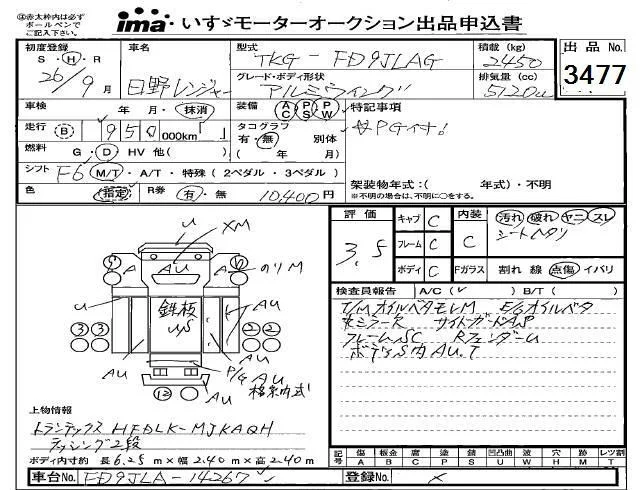 ④赤太枠内は必ず
ボールペンで
ご記入下さい。
ima いすゞモーターオークション出品申込書
初度登録 車名 型式 TKG-FD9JLAG 積載 (kg) 2450 出品 No.
S・H・R 26/9月 日野レンジャー グレード・ボディ形状 アルミウイング 排気量 (cc) 5120 3477
車検 年 月・抹消 装備 AC PS PW 特記事項
走行 B 950,000km 「 」 タコグラフ 有・無 別体 ( 年 月) PG付!
燃料 G・D・HV 他( )
シフト F6 M/T・A/T・特殊(2ペダル・3ペダル) 架装物年式:( 年式)・不明
色 (指定) R券 有・無 10,400円 ※不明の場合は、不明に○をする。
評価 3.5 キャブ C 内装 C 汚れ 破れ ヤニ スレ
フレーム C シートヘタリ
ボディ C Fガラス 割れ 線 点傷 イバリ
検査員報告 A/C( ✓ ) B/T( )
T/MオイルベタモレM E/Gオイルベタ
ミラーR サイトガードAS
フレームSC RフェンダーU
ボディS内AU.T
U XM
A AU A のリM
U 鉄板 U/S AU AU
3 3 2 2
AU P/G AU
AU 格納式
上物情報
トランテックス HFDLK-MJKAQH
ラッシング2段
ボディ内寸約 長 6.25 m×幅 2.40 m×高 2.40 m
記号 傷 A 凹 B 腐 C 塗 P 錆 S 凹凸曲 U 波 W 穴 H 跡 M レツ割 T
車台No. FD9JLA-14267 登録No. ×